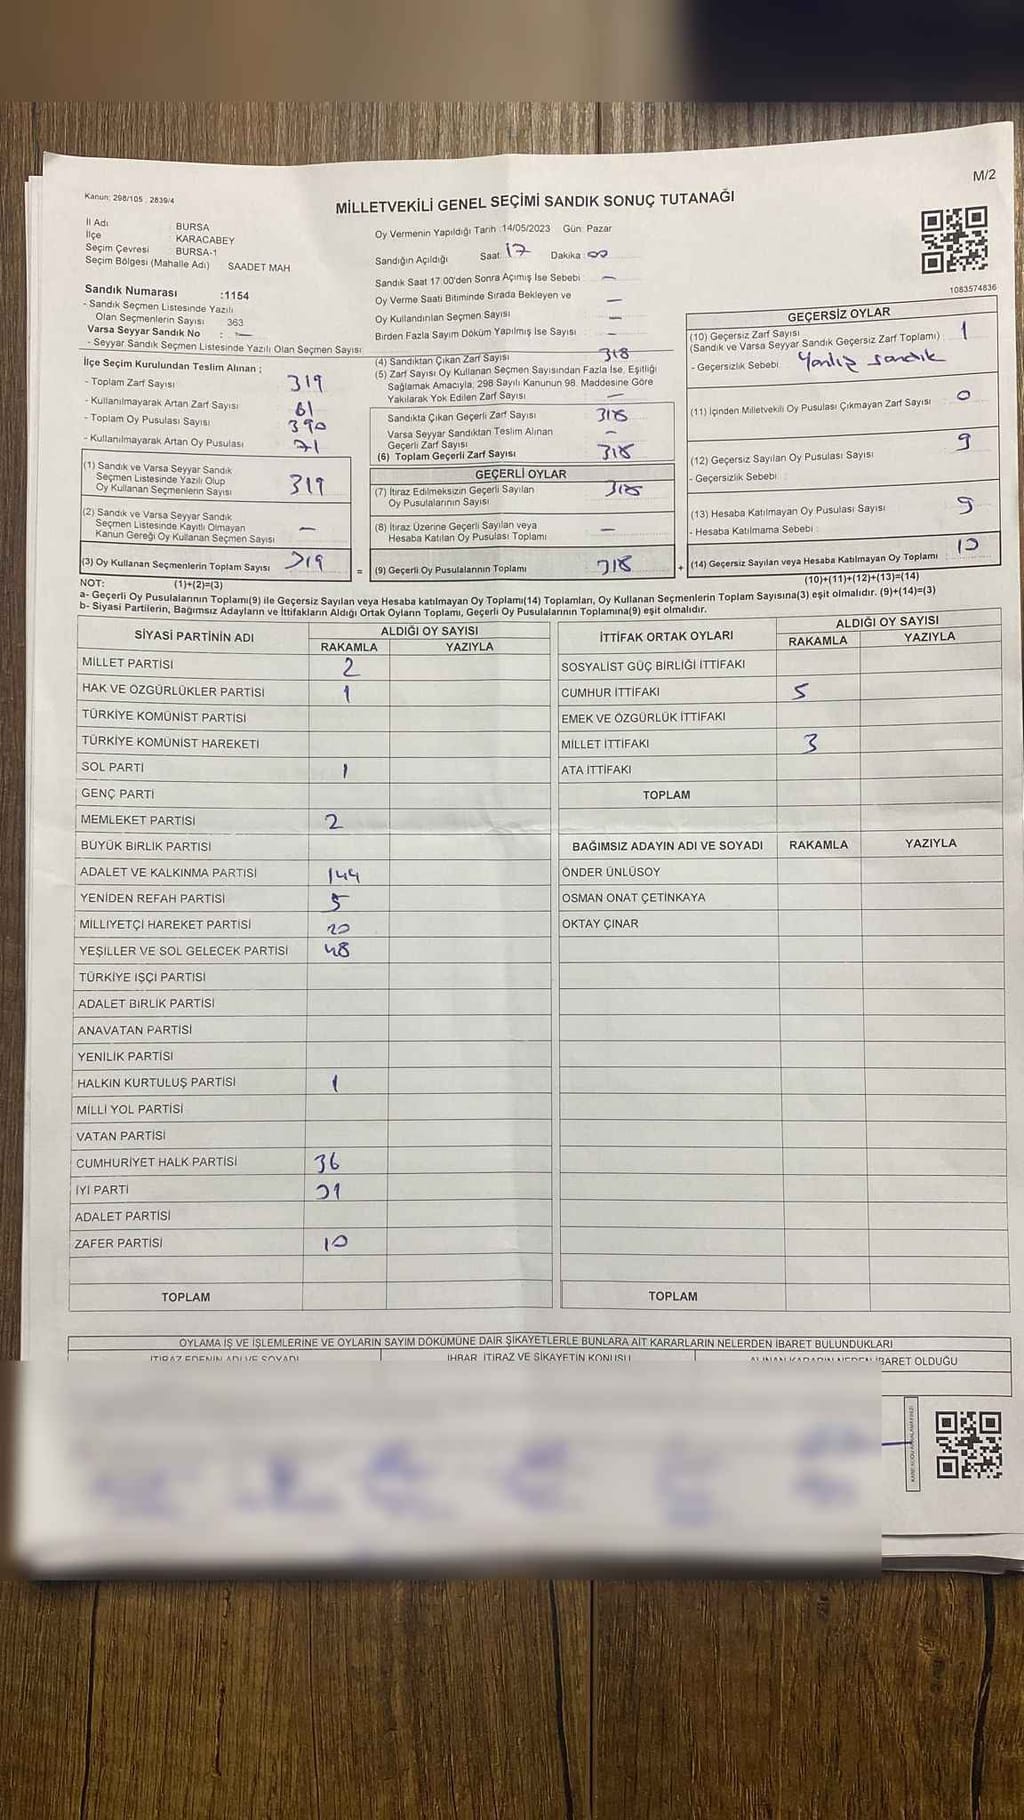 M/2
Kanun: 298/105 , 2839/4
MİLLETVEKİLİ GENEL SEÇİMİ SANDIK SONUÇ TUTANAĞI
İl Adı : BURSA
İlçe KARACABEY
Seçim Çevresi BURSA-1
Seçim Bölgesi (Mahalle Adı) SAADET MAH
Sandık Numarası :1154
- Sandık Seçmen Listesinde Yazılı
Olan Seçmenlerin Sayısı 363
Varsa Seyyar Sandık No : —
- Seyyar Sandık Seçmen Listesinde Yazılı Olan Seçmen Sayısı
İlçe Seçim Kurulundan Teslim Alınan ;
- Toplam Zarf Sayısı 319
- Kullanılmayarak Artan Zarf Sayısı 61
- Toplam Oy Pusulası Sayısı 390
- Kullanılmayarak Artan Oy Pusulası 71
(1) Sandık ve Varsa Seyyar Sandık
Seçmen Listesinde Yazılı Olup
Oy Kullanan Seçmenlerin Sayısı 319
(2) Sandık ve Varsa Seyyar Sandık
Seçmen Listesinde Kayıtlı Olmayan
Kanun Gereği Oy Kullanan Seçmen Sayısı —
(3) Oy Kullanan Seçmenlerin Toplam Sayısı 319 =
(1)+(2)=(3)
Oy Vermenin Yapıldığı Tarih :14/05/2023 Gün: Pazar
Sandığın Açıldığı Saat: 17 Dakika: 00
Sandık Saat 17:00'den Sonra Açımış İse Sebebi : —
Oy Verme Saati Bitiminde Sırada Bekleyen ve —
Oy Kullandırılan Seçmen Sayısı —
Birden Fazla Sayım Döküm Yapılmış İse Sayısı —
(4) Sandıktan Çıkan Zarf Sayısı 318
(5) Zarf Sayısı Oy Kullanan Seçmen Sayısından Fazla İse, Eşitliği
Sağlamak Amacıyla, 298 Sayılı Kanunun 98. Maddesine Göre
Yakılarak Yok Edilen Zarf Sayısı —
Sandıkta Çıkan Geçerli Zarf Sayısı 318
Varsa Seyyar Sandıktan Teslim Alınan
Geçerli Zarf Sayısı —
(6) Toplam Geçerli Zarf Sayısı 318
GEÇERLİ OYLAR
(7) İtiraz Edilmeksizin Geçerli Sayılan
Oy Pusulalarının Sayısı
(8) İtiraz Üzerine Geçerli Sayılan veya
Hesaba Katılan Oy Pusulası Toplamı —
(9) Geçerli Oy Pusulalarının Toplamı 318 +
1083574836
GEÇERSİZ OYLAR
(10) Geçersiz Zarf Sayısı
(Sandık ve Varsa Seyyar Sandık Geçersiz Zarf Toplamı) : 1
- Geçersizlik Sebebi : sandık
(11) İçinden Milletvekili Oy Pusulası Çıkmayan Zarf Sayısı 0
(12) Geçersiz Sayılan Oy Pusulası Sayısı 9
- Geçersizlik Sebebi :
(13) Hesaba Katılmayan Oy Pusulası Sayısı 9
- Hesaba Katılmama Sebebi :
(14) Geçersiz Sayılan veya Hesaba Katılmayan Oy Toplamı 10
(10)+(11)+(12)+(13)=(14)
NOT:
a- Geçerli Oy Pusulalarının Toplamı(9) ile Geçersiz Sayılan veya Hesaba katılmayan Oy Toplamı(14) Toplamları, Oy Kullanan Seçmenlerin Toplam Sayısına(3) eşit olmalıdır. (9)+(14)=(3)
b- Siyasi Partilerin, Bağımsız Adayların ve İttifakların Aldığı Ortak Oyların Toplamı, Geçerli Oy Pusulalarının Toplamına(9) eşit olmalıdır.
SİYASİ PARTİNİN ADI ALDIĞI OY SAYISI
RAKAMLA YAZIYLA
MİLLET PARTİSİ 2
HAK VE ÖZGÜRLÜKLER PARTİSİ 1
TÜRKİYE KOMÜNİST PARTİSİ
TÜRKİYE KOMÜNİST HAREKETİ
SOL PARTİ 1
GENÇ PARTİ
MEMLEKET PARTİSİ 2
BÜYÜK BİRLİK PARTİSİ
ADALET VE KALKINMA PARTİSİ 144
YENİDEN REFAH PARTİSİ 5
MİLLİYETÇİ HAREKET PARTİSİ 20
YEŞİLLER VE SOL GELECEK PARTİSİ 48
TÜRKİYE İŞÇİ PARTİSİ
ADALET BİRLİK PARTİSİ
ANAVATAN PARTİSİ
YENİLİK PARTİSİ
HALKIN KURTULUŞ PARTİSİ 1
MİLLİ YOL PARTİSİ
VATAN PARTİSİ
CUMHURİYET HALK PARTİSİ 36
İYİ PARTİ 31
ADALET PARTİSİ
ZAFER PARTİSİ 10
TOPLAM
İTTİFAK ORTAK OYLARI ALDIĞI OY SAYISI
RAKAMLA YAZIYLA
SOSYALİST GÜÇ BİRLİĞİ İTTİFAKI
CUMHUR İTTİFAKI 5
EMEK VE ÖZGÜRLÜK İTTİFAKI
MİLLET İTTİFAKI 3
ATA İTTİFAKI
TOPLAM
BAĞIMSIZ ADAYIN ADI VE SOYADI RAKAMLA YAZIYLA
ÖNDER ÜNLÜSOY
OSMAN ONAT ÇETİNKAYA
OKTAY ÇINAR
TOPLAM
OYLAMA İŞ VE İŞLEMLERİNE VE OYLARIN SAYIM DÖKÜMÜNE DAİR ŞİKAYETLERLE BUNLARA AİT KARARLARIN NELERDEN İBARET BULUNDUKLARI
İTİRAZ EDENİN ADI VE SOYADI İHBAR, İTİRAZ VE ŞİKAYETİN KONUSU ALINAN KARARIN NEDEN İBARET OLDUĞU